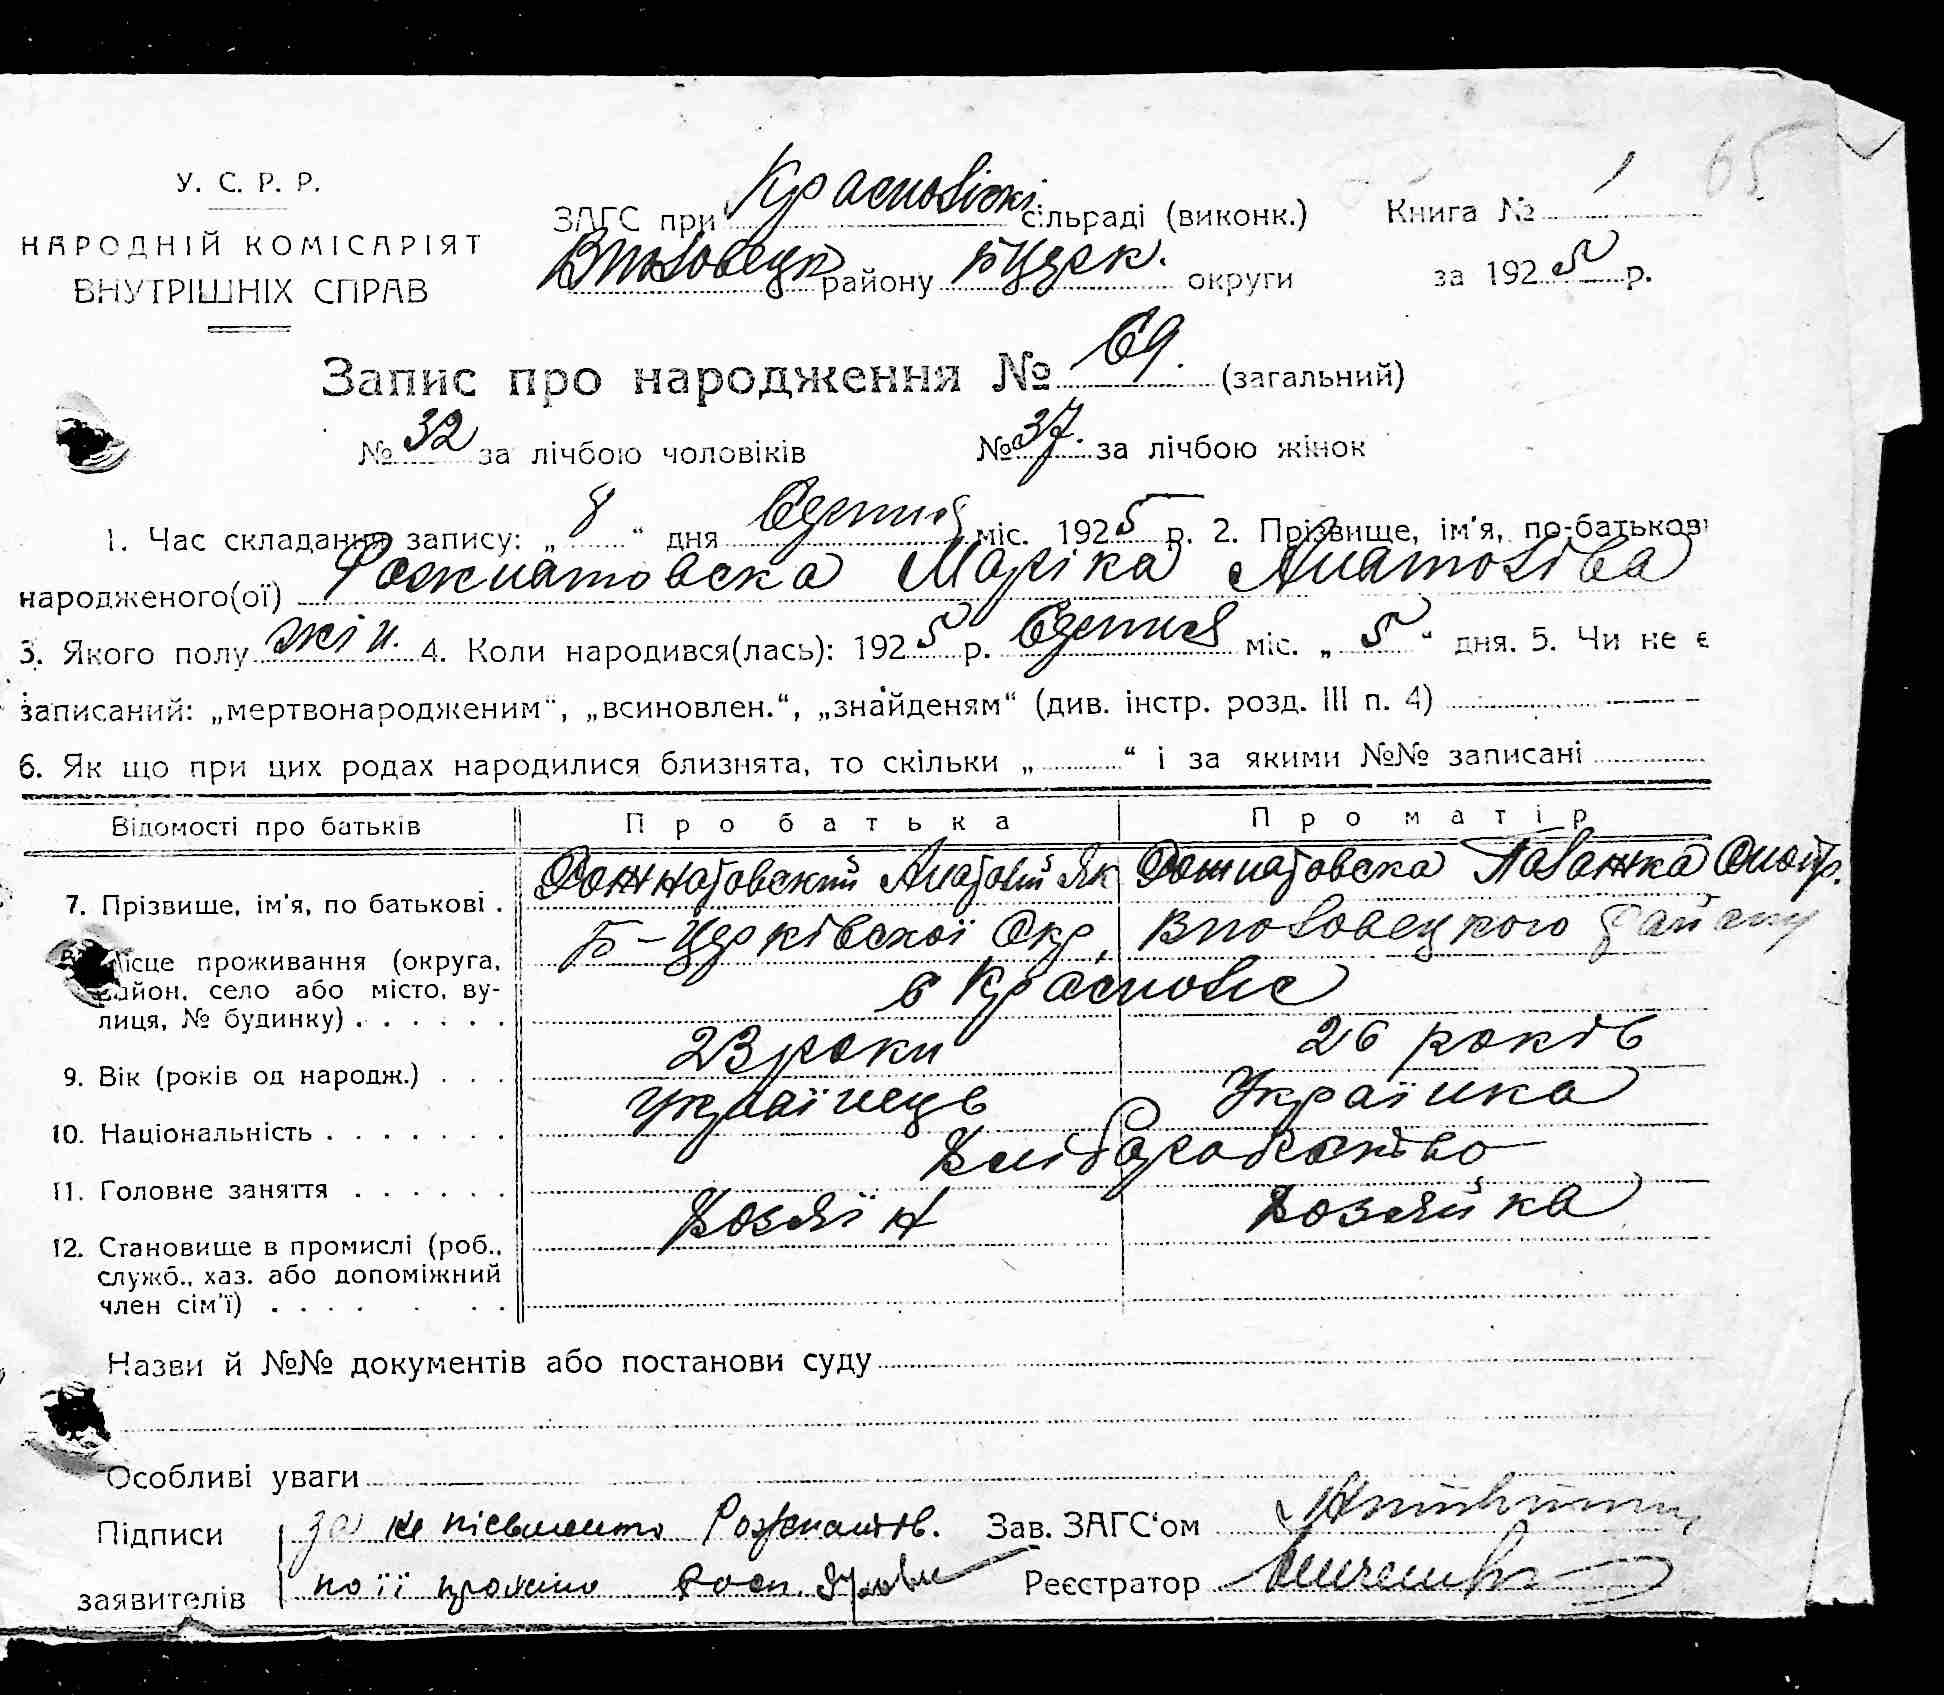 65
У. С. Р. Р.
НАРОДНІЙ КОМІСАРІЯТ
ВНУТРІШНІХ СПРАВ
ЗАГС при Красноліскі сільраді (виконк.) Книга № 1
району Б Церк. округи за 1925 р.
Запис про народження № 69. (загальний)
№ 32 за лічбою чоловіків № 37. за лічбою жінок
1. Час складання запису: „ 8 “ дня Серпня міс. 1925 р. 2. Прізвище, ім'я, по-батькові
народженого(ої) Рожнатовска Маріка Анатоліва
3. Якого полу жін. 4. Коли народився(лась): 1925 р. Серпня міс. „ 5 “ дня. 5. Чи не є
записаний: „мертвонародженим“, „всиновлен.“, „знайденям“ (див. інстр. розд. III п. 4)
6. Як що при цих родах народилися близнята, то скільки „ “ і за якими №№ записані
Відомості про батьків Про батька Про матір
7. Прізвище, ім'я, по батькові . Рожнатовский Анатолій Як Рожнатовска Палажка
Місце проживання (округа, Б-Церківскої Окр, району
район, село або місто, ву- с Красноліс
лиця, № будинку) . . . . . .
9. Вік (років од народж.) . . . 23 роки 26 років
10. Національність . . . . . . . Українець Українка
11. Головне заняття . . . . . . Хліборобство
12. Становище в промислі (роб., Хозяїн Хозяйка
служб., хаз. або допоміжний
член сім'ї) . . . . . . .
Назви й №№ документів або постанови суду
Особливі уваги
Підписи за не письменто Рожнатов. Зав. ЗАГС'ом
заявителів по її Росп. Реєстратор